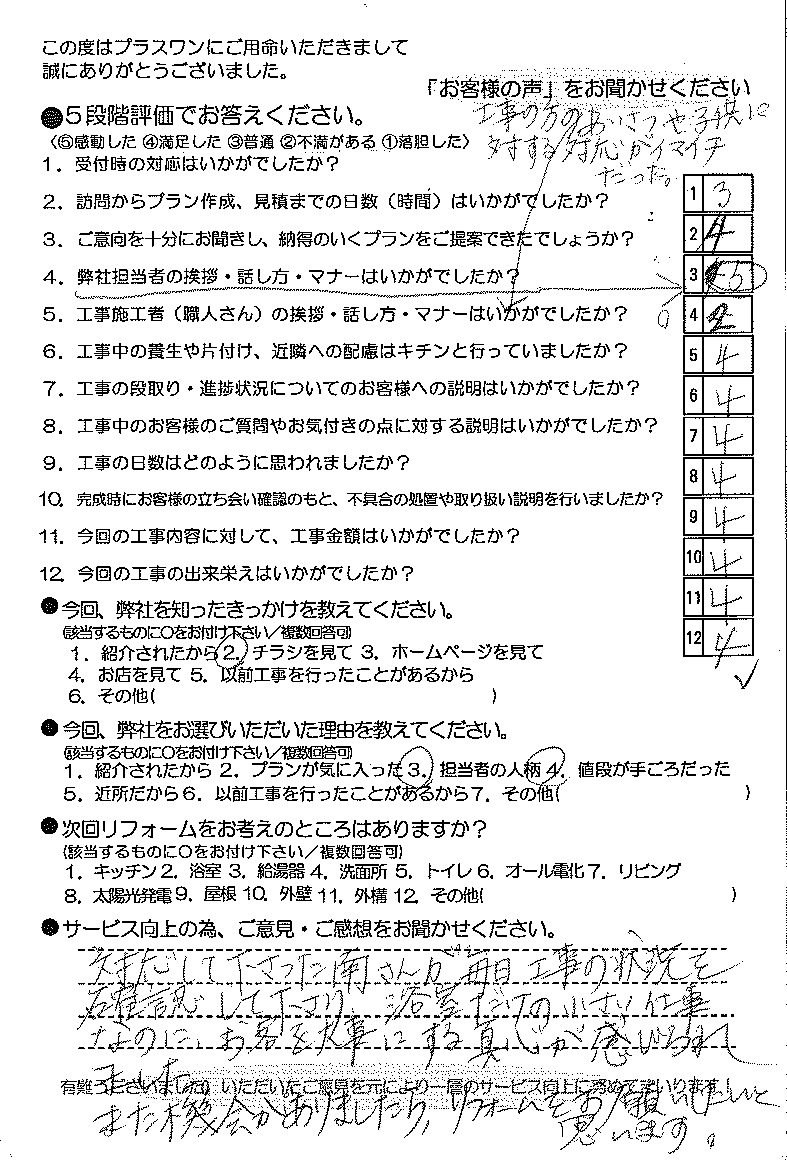 この度はプラスワンにご用命いただきまして
誠にありがとうございました。
「お客様の声」をお聞かせください
●５段階評価でお答えください。
〈⑤感動した ④満足した ③普通 ②不満がある ①落胆した〉
工事の方のあいさつや子供に
対する対応がイマイチ
だった。
1．受付時の対応はいかがでしたか？
2．訪問からプラン作成、見積までの日数（時間）はいかがでしたか？
3．ご意向を十分にお聞きし、納得のいくプランをご提案できたでしょうか？
4．弊社担当者の挨拶・話し方・マナーはいかがでしたか？
5．工事施工者（職人さん）の挨拶・話し方・マナーはいかがでしたか？
6．工事中の養生や片付け、近隣への配慮はキチンと行っていましたか？
7．工事の段取り・進捗状況についてのお客様への説明はいかがでしたか？
8．工事中のお客様のご質問やお気付きの点に対する説明はいかがでしたか？
9．工事の日数はどのように思われましたか？
10．完成時にお客様の立ち会い確認のもと、不具合の処置や取り扱い説明を行いましたか？
11．今回の工事内容に対して、工事金額はいかがでしたか？
12．今回の工事の出来栄えはいかがでしたか？
1 3
2 4
3 5
4 2
5 4
6 4
7 4
8 4
9 4
10 4
11 4
12 4
●今回、弊社を知ったきっかけを教えてください。
(該当するものに○をお付け下さい／複数回答可)
1．紹介されたから 2．チラシを見て 3．ホームページを見て
4．お店を見て 5．以前工事を行ったことがあるから
6．その他( )
●今回、弊社をお選びいただいた理由を教えてください。
(該当するものに○をお付け下さい／複数回答可)
1．紹介されたから 2．プランが気に入った 3．担当者の人柄 4．値段が手ごろだった
5．近所だから 6．以前工事を行ったことがあるから 7．その他( )
●次回リフォームをお考えのところはありますか？
(該当するものに○をお付け下さい／複数回答可)
1．キッチン 2．浴室 3．給湯器 4．洗面所 5．トイレ 6．オール電化 7．リビング
8．太陽光発電 9．屋根 10．外壁 11．外構 12．その他( )
●サービス向上の為、ご意見・ご感想をお聞かせください。
対応して下さった南さんが毎日工事の状況を
確認して下さり、浴室だけの小さい仕事
なのに、お客を大事にする真心が感じられ
ました。
有難うございました。いただいたご意見を元により一層のサービス向上に努めて参ります。
また機会がありましたら、リフォームをお願いしたいと
思います。